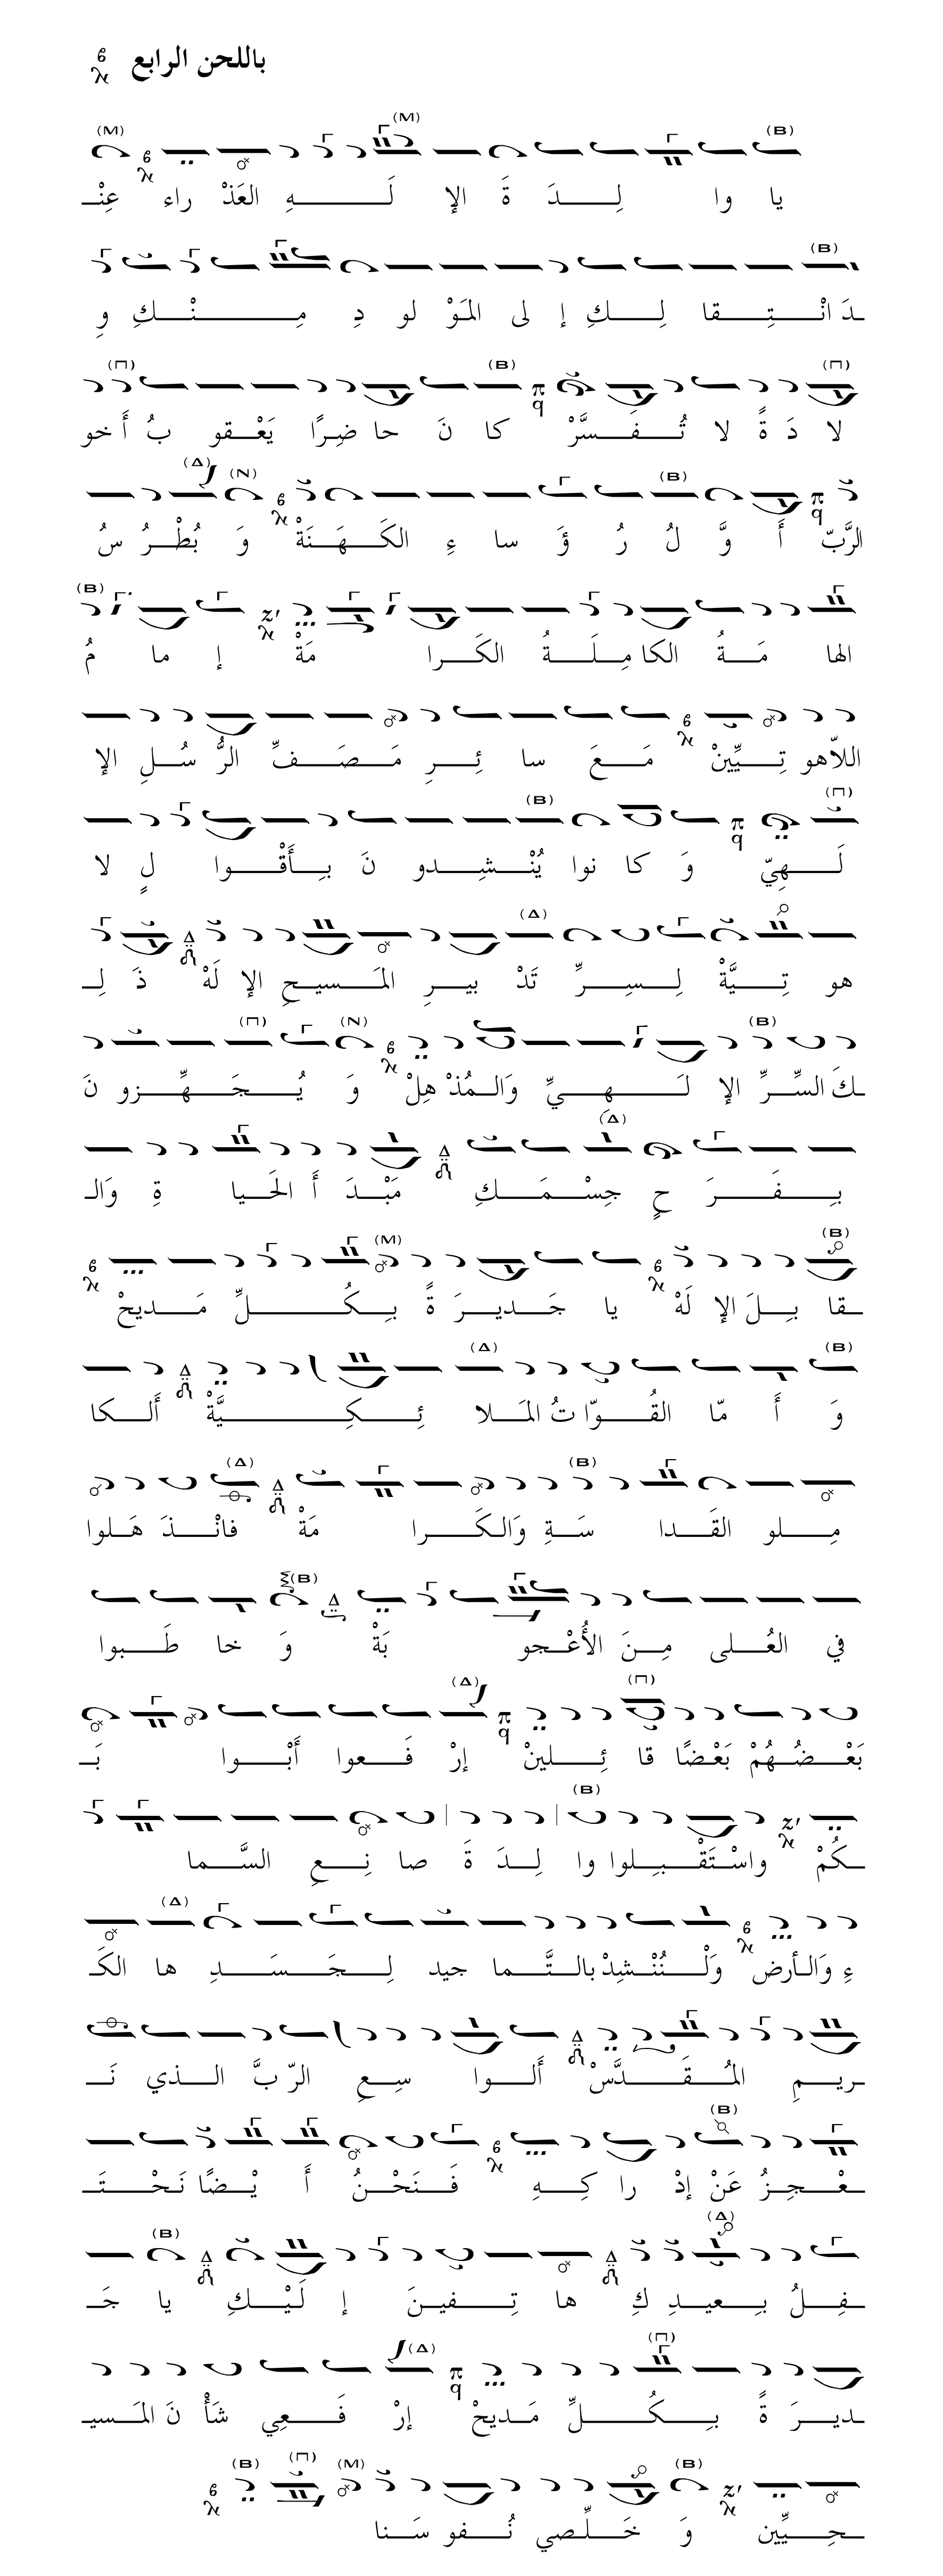 باللحن الرابع
يا وا لِـدَ ةَ الإ لَـهِ العَذْ راء عِنْـ
ـدَ انْـتِـقا لِـكِ إ لى المَوْ لو دِ مِـنْـكِ وِ
لا دَ ةً لا تُـفَـسَّرْ كا نَ حا ضِرًا يَعْـقو بُ أَ خو
الرَّبّ أَ وَّ لُ رُ ؤَ سا ءِ الكَـهَـنَةْ وَ بُطْـرُ سُ
الها مَـةُ الكا مِـلَـةُ الكَـرا مَةْ إ ما مُ
اللاّهو تِـيِّينْ مَـعَ سا ئِـرِ مَـصَـفِّ الرُّ سُـلِ الإ
لَـهِيّ وَ كا نوا يُنْـشِـدو نَ بِـأَقْـوا لٍ لا
هو تِـيَّةْ لِـسِـرِّ تَدْ بيـرِ المَـسيـحِ الإ لَهْ ذَ لِـ
ـكَ السِّـرِّ الإ لَـهِـيِّ وَالـمُذْ هِلْ وَ يُـجَـهِّـزو نَ
بِـفَـرَ حٍ جِسْـمَـكِ مَبْـدَ أَ الحَـيا ةِ وَالـ
ـقا بِـلَ الإ لَهْ يا جَـديـرَ ةً بِـكُـلِّ مَـديحْ
وَ أَ مّا القُـوّا تُ المَـلا ئِـكِـيَّةْ أَلـكا
مِـلو القَـدا سَـةِ وَالـكَـرا مَةْ فانْـذَ هَـلوا
في العُـلى مِـنَ الأُعْـجو بَةْ وَ خا طَـبوا
بَعْـضُـهُمْ بَعْـضًا قا ئِـلينْ إرْ فَـعوا أَبْـوا بَـ
ـكُمْ واسْـتَقْـبِـلوا وا لِـدَ ةَ صا نِـعِ السَّـما
ءِ وَالـأرض وَلْـنُنْـشِدْ بالـتَّـما جيد لِـجَـسَـدِ ها الكَـ
ـريـمِ المُـقَـدَّسْ أَلـوا سِـعِ الرّ بَّ الـذي نَـ
ـعْـجِـزُ عَنْ إدْ را كِـهِ فَـنَحْـنُ أَ يْـضًا نَـحْـتَـ
ـفِـلُ بِـعيـدِ كِ ها تِـفيـنَ إ لَـيْـكِ يا جَـ
ـديـرَ ةً بِـكُـلِّ مَـديحْ إرْ فَـعِي شَأْ نَ المَـسيـ
ـحِـيِّين وَ خَـلِّـصي نُـفو سَـنا